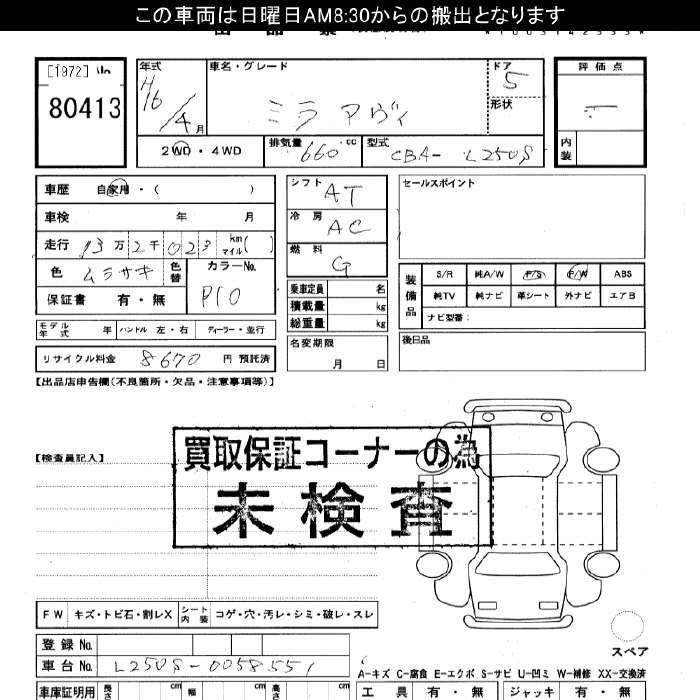 この車両は日曜日AM8:30からの搬出となります
[1972]
80413
年式
H16/4月
車名・グレード
ミラ アヴィ
ドア
5
形状
評価点
内装
2WD・4WD
排気量
660 cc
型式
CBA- L250S
車歴 自家用・( )
車検 年 月
走行 13万2千023 km マイル( )
色 ムラサキ 色替
カラーNo.
P10
保証書 有・無
シフト
AT
冷房
AC
燃料
G
乗車定員 名
積載量 kg
総重量 kg
名変期限
月 日
セールスポイント
装備品
S/R 純A/W P/S P/W ABS
純TV 純ナビ 革シート 外ナビ エアB
ナビ型番:
後日品
モデル年式 年 ハンドル 左・右 ディーラー・並行
リサイクル料金 8670 円 預託済
【出品店申告欄(不良箇所・欠品・注意事項等)】
【検査員記入】
買取保証コーナーの為
未検査
FW キズ・トビ石・割レX シート内装 コゲ・穴・汚レ・シミ・破レ・スレ
スペア
登録No.
車台No. L250S-0058551
A-キズ C-腐食 E-エクボ S-サビ U-凹ミ W-補修 XX-交換済
車庫証明用 長さ cm 幅 cm 高さ cm
工具 有・無 ジャッキ 有・無